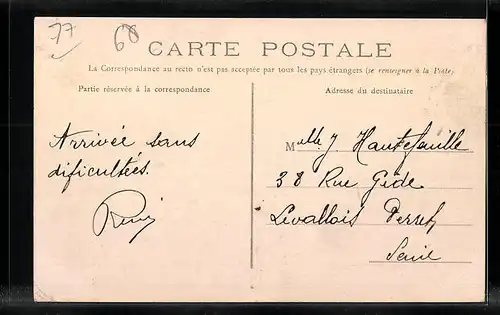 77
68
CARTE POSTALE
La Correspondance au recto n'est pas acceptée par tous les pays étrangers (se renseigner à la Poste)
Partie réservée à la correspondance
Adresse du destinataire
Arrivée sans
dificultées.
Mlle J. Hautefeuille
38 Rue Gide
Levallois Perret
Seine